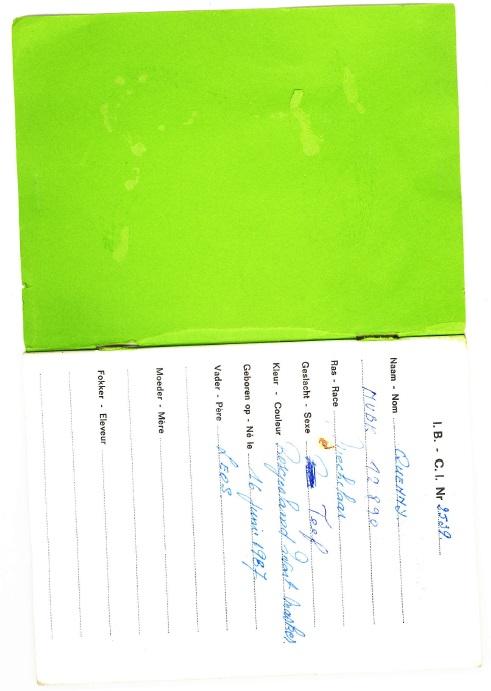 I. B. - C. I. Nr 2532
Naam - Nom QUENNY.
MVBK 12890
Ras - Race Mechelaar
Geslacht - Sexe Teef
Kleur - Couleur zwart masker.
Geboren op - Né le 16 Juni 1987
Vader - Père LEOS.
Moeder - Mère
Fokker - Eleveur